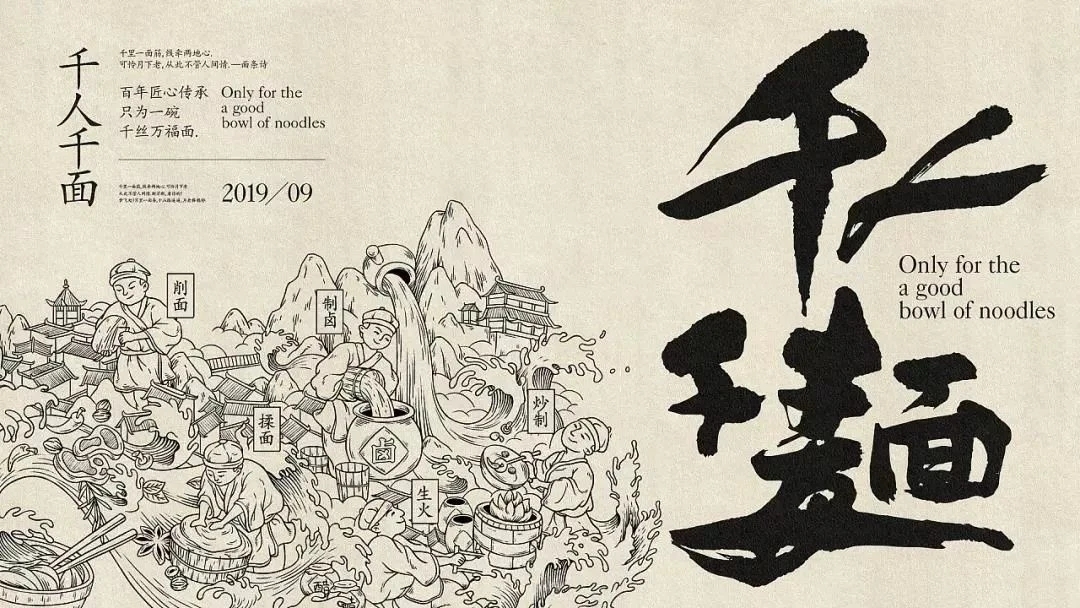 千人千面
千里一面筋,线牵两地心.
可怜月下老,从此不管人间情.—面条诗
百年匠心传承
只为一碗
千丝万福面.
Only for the
a good
bowl of noodles
2019/09
千人
千麵
Only for the
a good
bowl of noodles
削面
制卤
揉面
炒制
生火
卤
醋